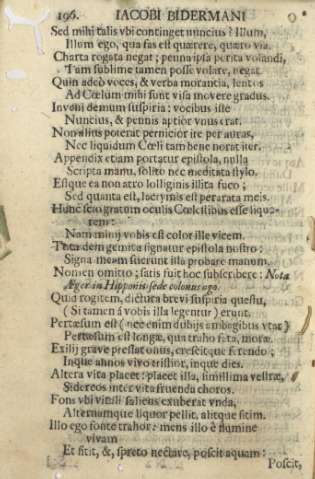 196. IACOBI BIDERMANI
Sed mihi talis vbi continget nuncius? Illum,
Illum ego, qua fas est quærere, quæro via.
Charta rogata negat; penna ipsa perita volandi,
Tam sublime tamen posse volare, negat.
Quin adeò voces, & verba morantia, lentos
Ad Cœlum mihi sunt visa movere gradus.
Inveni demum suspiria: vocibus iste
Nuncius, & pennis aptior vnus erat.
Non alius poterat pernicior ire per auras,
Nec liquidum Cœli tam bene norat iter.
Appendix etiam portatur epistola, nulla
Scripta manu, solito nec meditata stylo.
Estque ea non atro lolliginis illita fuco;
Sed quanta est, lacrymis est perarata meis.
Hunc scio gratum oculis Cœlestibus esse liquo-
rem:
Nam nimij vobis est color ille vicem.
Tota dein gemitu signatur epistola nostro:
Signa meam suerunt illa probare manum.
Nomen omitto; satis fuit hoc subscribere: Nota
Æger in Hipponis sede colonus ego.
Quid rogitem, dictura brevi suspiria questu,
(Si tamen à vobis illa legentur) erunt.
Pertæsum est (nec enim dubijs ambagibus vtar)
Pertæsum est longæ, qua traho fata, moræ.
Exilij grave præstat onus, crescitque ferendo;
Inque annos vivo tristior, inque dies.
Altera vita placet: placet illa, simillima vestræ,
Sidereos inter vita fruenda choros.
Fons vbi vitali saliens exuberat vnda,
Alternamque liquor pellit, alitque sitim.
Illo ego fonte trahor: mens illo è flumine
vivam
Et sitit, & spreto nectare, poscit aquam:
Poscit,